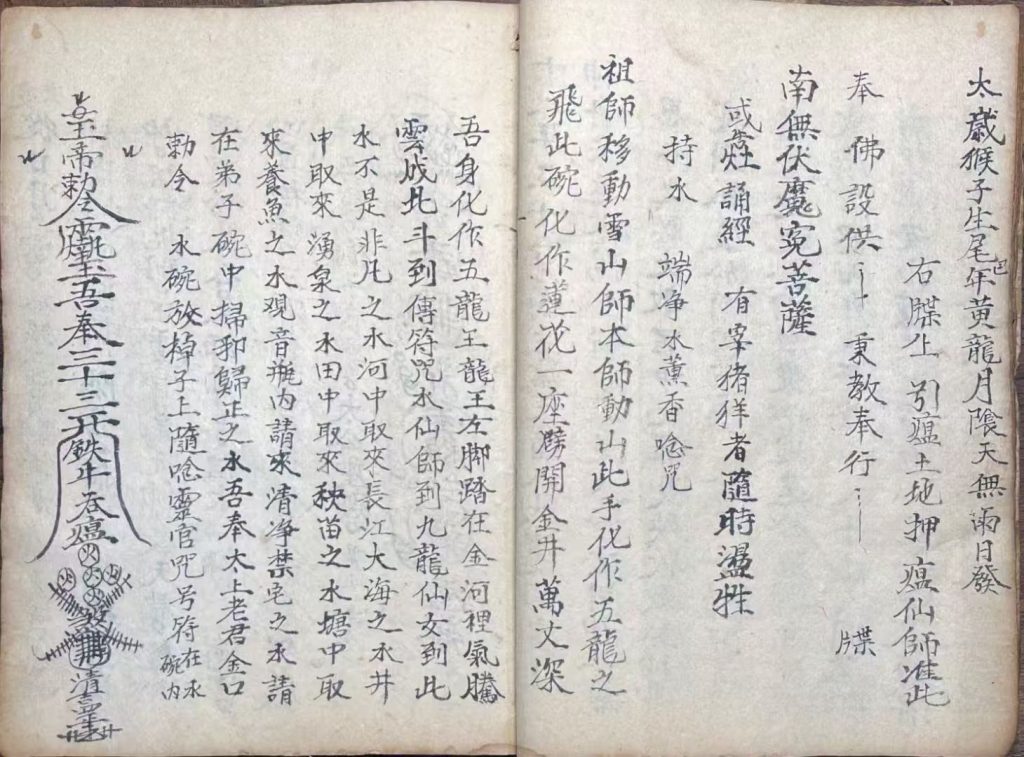 太歲猴子生尾年黃龍月陰天無雨日發
右牒上 引瘟土地押瘟仙師准此
奉 佛設供 秉教奉行 牒
南無伏魔寃菩薩
或 灶誦經 有宰猪羊者隨時盪牲
持水 端净水薰香唸咒
祖師移動雪山師本師動山此手化作五龍之
飛此碗化作蓮花一座劈開金井萬丈深
吾身化作五龍王龍王左脚踏在金河裡氣騰
雲成北斗到傳符咒水仙師到九龍仙女到此
水不是非凡之水河中取來長江大海之水井
中取來湧泉之水田中取來秧苗之水塘中取
來養魚之水觀音瓶內請來清净禁宅之水請
在弟子碗中掃邪歸正之水吾奉太上老君金口
勅令 水碗放棹子上隨唸靈官咒号符在水碗内
玉帝勅令 吾奉三十三天鉄牛吞瘟 火火火火火 清